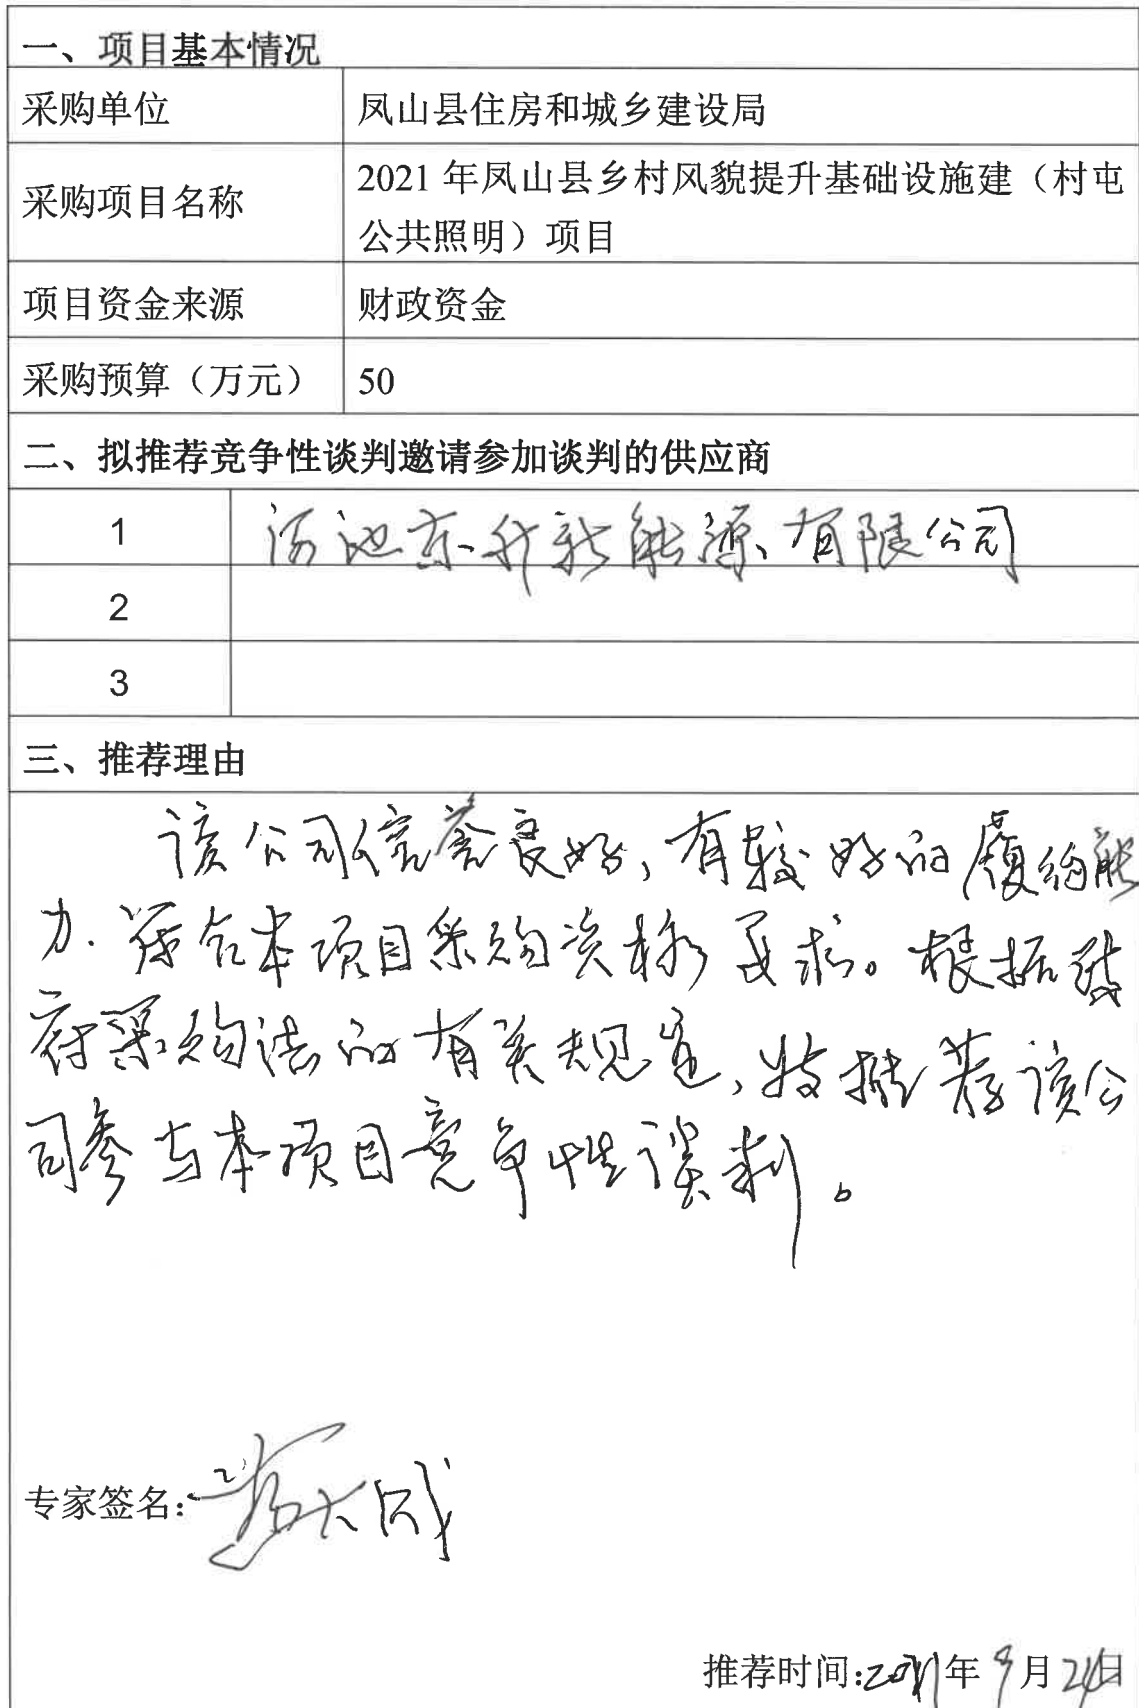 一、项目基本情况
采购单位 凤山县住房和城乡建设局
采购项目名称 2021年凤山县乡村风貌提升基础设施建（村屯
公共照明）项目
项目资金来源 财政资金
采购预算（万元） 50
二、拟推荐竞争性谈判邀请参加谈判的供应商
1 河池东升新能源有限公司
2
3
三、推荐理由
该公司信誉良好，有较好的履约能
力.符合本项目采购资格要求。根据政
府采购法的有关规定，特推荐该公
司参与本项目竞争性谈判。
专家签名：
推荐时间：2021年9月24日